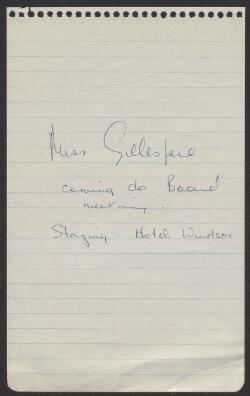 Miss Gillespie
coming to Board
meeting.
Staying Hotel Windsor